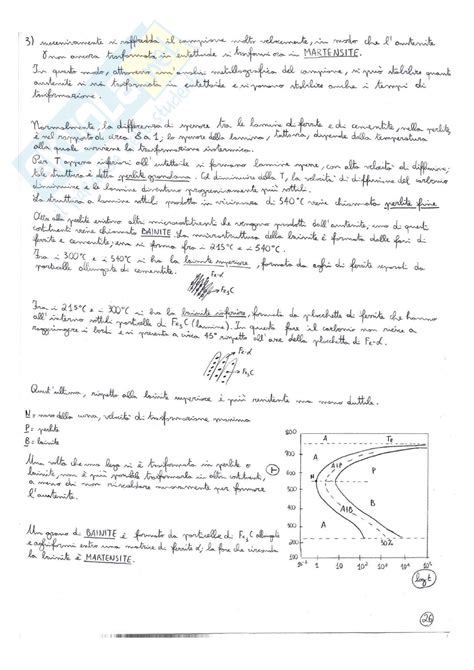 3) successivamente si raffredda il campione molto velocemente, in modo che l'austenite
γ non ancora trasformata in eutettoide si trasformi ora in MARTENSITE.
In questo modo, attraverso un analisi metallografica del campione, si può stabilire quanta
austenite si è trasformata in eutettoide e si possono stabilire anche i tempi di
trasformazione.
Normalmente, la differenza di spessore tra le lamine di ferrite e di cementite, nella perlite,
è nel rapporto di circa 8 a 1, lo spessore delle lamine, tuttavia, dipende dalla temperatura
alla quale avviene la trasformazione isotermica.
Per T appena inferiori all'eutettoide si formano lamine spesse, con alta velocità di diffusione;
tale struttura è detta perlite grossolana. Al diminuire della T, la velocità di diffusione del carbonio
diminuisce e le lamine diventano progressivamente più sottili.
La struttura a lamine sottili prodotta in vicinanza di 540°C viene chiamata perlite fine.
Oltre alla perlite esistono altri microcostituenti che vengono prodotti dall'austenite, uno di questi
costituenti viene chiamato BAINITE. La microstruttura della bainite è formata dalle fasi di
ferrite e cementite; essa si forma fra i 215°C e i 540°C.
Fra i 300°C e i 540°C si ha la bainite superiore, formata da aghi di ferrite separati da
particelle allungate di cementite.
Fe-α
Fe₃C
Fra i 215°C e i 300°C si ha la bainite inferiore, formata da placchette di ferrite che hanno
all'interno sottili particelle di Fe₃C (lamine). In questa fase il carbonio non riesce a
raggiungere i bordi e si presenta a circa 45° rispetto all'asse della placchetta di Fe-α.
Fe-α
Fe₃C
Quest'ultima, rispetto alla bainite superiore è più resistente ma meno duttile.
N = naso della curva, velocità di trasformazione massima
P = perlite
B = bainite
Una volta che una lega si è trasformata in perlite o
bainite, non è più possibile trasformarla in altri costituenti,
a meno di non riscaldare nuovamente per formare
l'austenite.
Un grano di BAINITE è formato da particelle di Fe₃C allungate
e aghiformi entro una matrice di ferrite α, la fase che circonda
la bainite è MARTENSITE.
T
800
700
600
500
400
300
200
100
A
TE
A
A+P
P
N
B
A+B
A
50%
10⁻¹ 1 10 10² 10³ 10⁴ 10⁵
log t
26